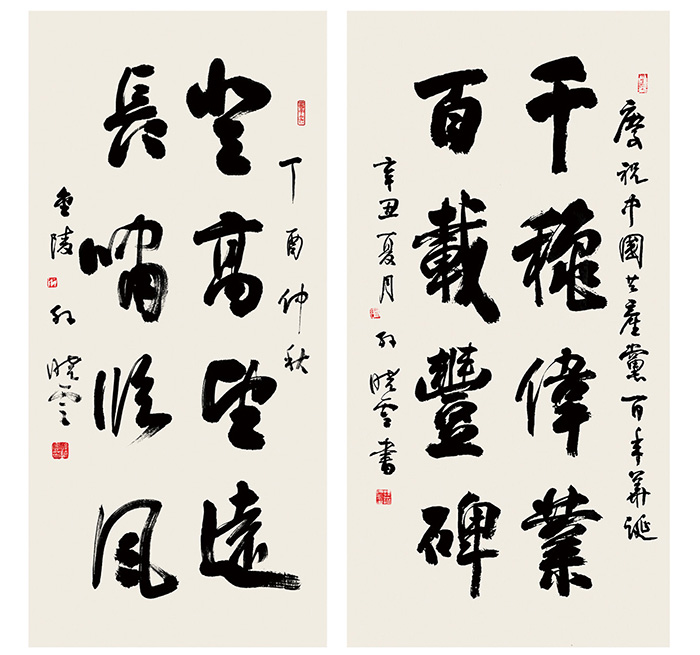 慶祝中國共產黨百年華誕
千穐偉業
百載豐碑
辛丑夏月 孫曉雲書
丁酉仲秋
登高望遠
長嘯臨風
金陵 孫曉雲